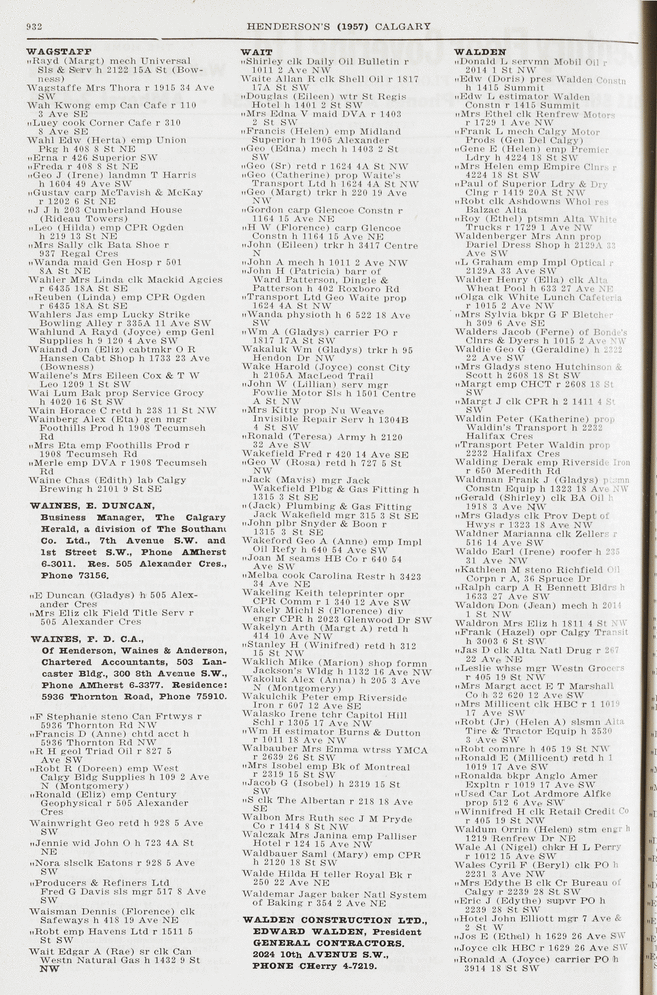 932
HENDERSON'S (1957) CALGARY
WAGSTAFF
„Rayd (Margt) mech Universal
Sls & Serv h 2122 15A St (Bow-
ness)
Wagstaffe Mrs Thora r 1915 34 Ave
SW
Wah Kwong emp Can Cafe r 110
3 Ave SE
„Luey cook Corner Cafe r 310
8 Ave SE
Wahl Edw (Herta) emp Union
Pkg h 408 8 St NE
„Erna r 426 Superior SW
„Freda r 408 8 St NE
„Geo J (Irene) landmn T Harris
h 1604 49 Ave SW
„Gustav carp McTavish & McKay
r 1202 6 St NE
„J J h 203 Cumberland House
(Rideau Towers)
„Leo (Hilda) emp CPR Ogden
h 219 13 St NE
„Mrs Sally clk Bata Shoe r
937 Regal Cres
„Wanda maid Gen Hosp r 501
8A St NE
Wahler Mrs Linda clk Mackid Agcies
r 6435 18A St SE
„Reuben (Linda) emp CPR Ogden
r 6435 18A St SE
Wahlers Jas emp Lucky Strike
Bowling Alley r 335A 11 Ave SW
Wahlund A Rayd (Joyce) emp Genl
Supplies h 9 120 4 Ave SW
Waiand Jon (Eliz) cabtmkr O R
Hansen Cabt Shop h 1733 23 Ave
(Bowness)
Wailene's Mrs Eileen Cox & T W
Leo 1209 1 St SW
Wai Lum Bak prop Service Grocy
h 4020 16 St SW
Wain Horace C retd h 238 11 St NW
Wainberg Alex (Eta) gen mgr
Foothills Prod h 1908 Tecumseh
Rd
„Mrs Eta emp Foothills Prod r
1908 Tecumseh Rd
„Merle emp DVA r 1908 Tecumseh
Rd
Waine Chas (Edith) lab Calgy
Brewing h 2101 9 St SE
WAINES, E. DUNCAN,
Business Manager, The Calgary
Herald, a division of The Southam
Co. Ltd., 7th Avenue S.W. and
1st Street S.W., Phone AMherst
6-3011. Res. 505 Alexander Cres.,
Phone 73156.
„E Duncan (Gladys) h 505 Alex-
ander Cres
„Mrs Eliz clk Field Title Serv r
505 Alexander Cres
WAINES, F. D. C.A.,
Of Henderson, Waines & Anderson,
Chartered Accountants, 503 Lan-
caster Bldg., 300 8th Avenue S.W.,
Phone AMherst 6-3377. Residence:
5936 Thornton Road, Phone 75910.
„F Stephanie steno Can Frtwys r
5936 Thornton Rd NW
„Francis D (Anne) chtd acct h
5936 Thornton Rd NW
„R H geol Triad Oil r 827 5
Ave SW
„Robt R (Doreen) emp West
Calgy Bldg Supplies h 109 2 Ave
N (Montgomery)
„Ronald (Eliz) emp Century
Geophysical r 505 Alexander
Cres
Wainwright Geo retd h 928 5 Ave
SW
„Jennie wid John O h 723 4A St
NE
„Nora slsclk Eatons r 928 5 Ave
SW
„Producers & Refiners Ltd
Fred G Davis sls mgr 517 8 Ave
SW
Waisman Dennis (Florence) clk
Safeways h 418 19 Ave NE
„Robt emp Havens Ltd r 1511 5
St SW
Wait Edgar A (Rae) sr clk Can
Westn Natural Gas h 1432 9 St
NW
WAIT
„Shirley clk Daily Oil Bulletin r
1011 2 Ave NW
Waite Allan R clk Shell Oil r 1817
17A St SW
„Douglas (Eileen) wtr St Regis
Hotel h 1401 2 St SW
„Mrs Edna V maid DVA r 1403
2 St SW
„Francis (Helen) emp Midland
Superior h 1905 Alexander
„Geo (Edna) mech h 1403 2 St
SW
„Geo (Sr) retd r 1624 4A St NW
„Geo (Catherine) prop Waite's
Transport Ltd h 1624 4A St NW
„Geo (Margt) trkr h 220 19 Ave
NW
„Gordon carp Glencoe Constn r
1164 15 Ave NE
„H W (Florence) carp Glencoe
Constn h 1164 15 Ave NE
„John (Eileen) trkr h 3417 Centre
N
„John A mech h 1011 2 Ave NW
„John H (Patricia) barr of
Ward Patterson, Dingle &
Patterson h 402 Roxboro Rd
„Transport Ltd Geo Waite prop
1624 4A St NW
„Wanda physioth h 6 522 18 Ave
SW
„Wm A (Gladys) carrier PO r
1817 17A St SW
Wakaluk Wm (Gladys) trkr h 95
Hendon Dr NW
Wake Harold (Joyce) const City
h 2105A MacLeod Trail
„John W (Lillian) serv mgr
Fowlie Motor Sls h 1501 Centre
A St NW
„Mrs Kitty prop Nu Weave
Invisible Repair Serv h 1304B
4 St SW
„Ronald (Teresa) Army h 2120
32 Ave SW
Wakefield Fred r 420 14 Ave SE
„Geo W (Rosa) retd h 727 5 St
NW
„Jack (Mavis) mgr Jack
Wakefield Plbg & Gas Fitting h
1315 3 St SE
„(Jack) Plumbing & Gas Fitting
Jack Wakefield mgr 315 3 St SE
„John plbr Snyder & Boon r
1315 3 St SE
Wakeford Geo A (Anne) emp Impl
Oil Refy h 640 54 Ave SW
„Joan M seams HB Co r 640 54
Ave SW
„Melba cook Carolina Restr h 3423
34 Ave NE
Wakeling Keith teleprinter opr
CPR Comm r 1 340 12 Ave SW
Wakely Michl S (Florence) div
engr CPR h 2023 Glenwood Dr SW
Wakelyn Arth (Margt A) retd h
414 10 Ave NW
„Stanley H (Winifred) retd h 312
15 St NW
Waklich Mike (Marion) shop formn
Jackson's Wldg h 1132 16 Ave NW
Wakoluk Alex (Anna) h 205 3 Ave
N (Montgomery)
Wakulchik Peter emp Riverside
Iron r 607 12 Ave SE
Walasko Irene tchr Capitol Hill
Schl r 1305 17 Ave NW
„Wm H estimator Burns & Dutton
r 1011 18 Ave NW
Walbauber Mrs Emma wtrss YMCA
r 2639 26 St SW
„Mrs Isobel emp Bk of Montreal
r 2319 15 St SW
„Jacob G (Isobel) h 2319 15 St
SW
„S clk The Albertan r 218 18 Ave
SE
Walbon Mrs Ruth sec J M Pryde
Co r 1414 8 St NW
Walczak Mrs Janina emp Palliser
Hotel r 124 15 Ave NW
Waldbauer Saml (Mary) emp CPR
h 2120 18 St SW
Walde Hilda H teller Royal Bk r
250 22 Ave NE
Waldemar Jager baker Natl System
of Baking r 354 2 Ave NE
WALDEN CONSTRUCTION LTD.,
EDWARD WALDEN, President
GENERAL CONTRACTORS.
2024 10th AVENUE S.W.,
PHONE CHerry 4-7219.
WALDEN
„Donald L servmn Mobil Oil r
2014 1 St NW
„Edw (Doris) pres Walden Constn
h 1415 Summit
„Edw L estimator Walden
Constn r 1415 Summit
„Mrs Ethel clk Renfrew Motors
r 1729 1 Ave NW
„Frank L mech Calgy Motor
Prods (Gen Del Calgy)
„Gene E (Helen) emp Premier
Ldry h 4224 18 St SW
„Mrs Helen emp Empire Clnrs r
4224 18 St SW
„Paul of Superior Ldry & Dry
Clng r 1419 20A St NW
„Robt clk Ashdowns Whol res
Balzac Alta
„Roy (Ethel) ptsmn Alta White
Trucks r 1729 1 Ave NW
Waldenberger Mrs Ann prop
Dariel Dress Shop h 2129A 33
Ave SW
„L Graham emp Impl Optical r
2129A 33 Ave SW
Walder Henry (Ella) clk Alta
Wheat Pool h 633 27 Ave NE
„Olga clk White Lunch Cafeteria
r 1015 2 Ave NW
„Mrs Sylvia bkpr G F Bletcher
h 309 6 Ave SE
Walders Jacob (Ferne) of Bonde's
Clnrs & Dyers h 1015 2 Ave NW
Waldie Geo G (Geraldine) h 2322
22 Ave SW
„Mrs Gladys steno Hutchinson &
Scott h 2608 18 St SW
„Margt emp CHCT r 2608 18 St
SW
„Margt J clk CPR h 2 1411 4 St
SW
Waldin Peter (Katherine) prop
Waldin's Transport h 2232
Halifax Cres
„Transport Peter Waldin prop
2232 Halifax Cres
Walding Derak emp Riverside Iron
r 650 Meredith Rd
Waldman Frank J (Gladys) ptsmn
Constn Equip h 1323 18 Ave NW
„Gerald (Shirley) clk BA Oil h
1918 3 Ave NW
„Mrs Gladys clk Prov Dept of
Hwys r 1323 18 Ave NW
Waldner Marianna clk Zellers r
516 14 Ave SW
Waldo Earl (Irene) roofer h 235
31 Ave NW
„Kathleen M steno Richfield Oil
Corpn r A, 36 Spruce Dr
„Ralph carp A R Bennett Bldrs h
1633 27 Ave SW
Waldon Don (Jean) mech h 2014
1 St NW
Waldron Mrs Eliz h 1811 4 St NW
„Frank (Hazel) opr Calgy Transit
h 3003 6 St SW
„Jas D clk Alta Natl Drug r 267
22 Ave NE
„Leslie whse mgr Westn Grocers
r 405 19 St NW
„Mrs Margt acct E T Marshall
Co h 32 620 12 Ave SW
„Mrs Millicent clk HBC r 1 1019
17 Ave SW
„Robt (Jr) (Helen A) slsmn Alta
Tire & Tractor Equip h 3530
3 Ave SW
„Robt comnre h 405 19 St NW
„Ronald E (Millicent) retd h 1
1019 17 Ave SW
„Ronalda bkpr Anglo Amer
Expltn r 1019 17 Ave SW
„Used Car Lot Ardmore Alfke
prop 512 6 Ave SW
„Winnifred H clk Retail Credit Co
r 405 19 St NW
Waldum Orrin (Helen) stm engr h
1219 Renfrew Dr NE
Wale Al (Nigel) chkr H L Perry
r 1012 15 Ave SW
Wales Cyril F (Beryl) clk PO h
2231 3 Ave NW
„Mrs Edythe B clk Cr Bureau of
Calgy r 2239 28 St SW
„Eric J (Edythe) supvr PO h
2239 28 St SW
„Hotel John Elliott mgr 7 Ave &
2 St W
„Jos E (Ethel) h 1629 26 Ave SW
„Joyce clk HBC r 1629 26 Ave SW
„Ronald A (Joyce) carrier PO h
3914 18 St SW